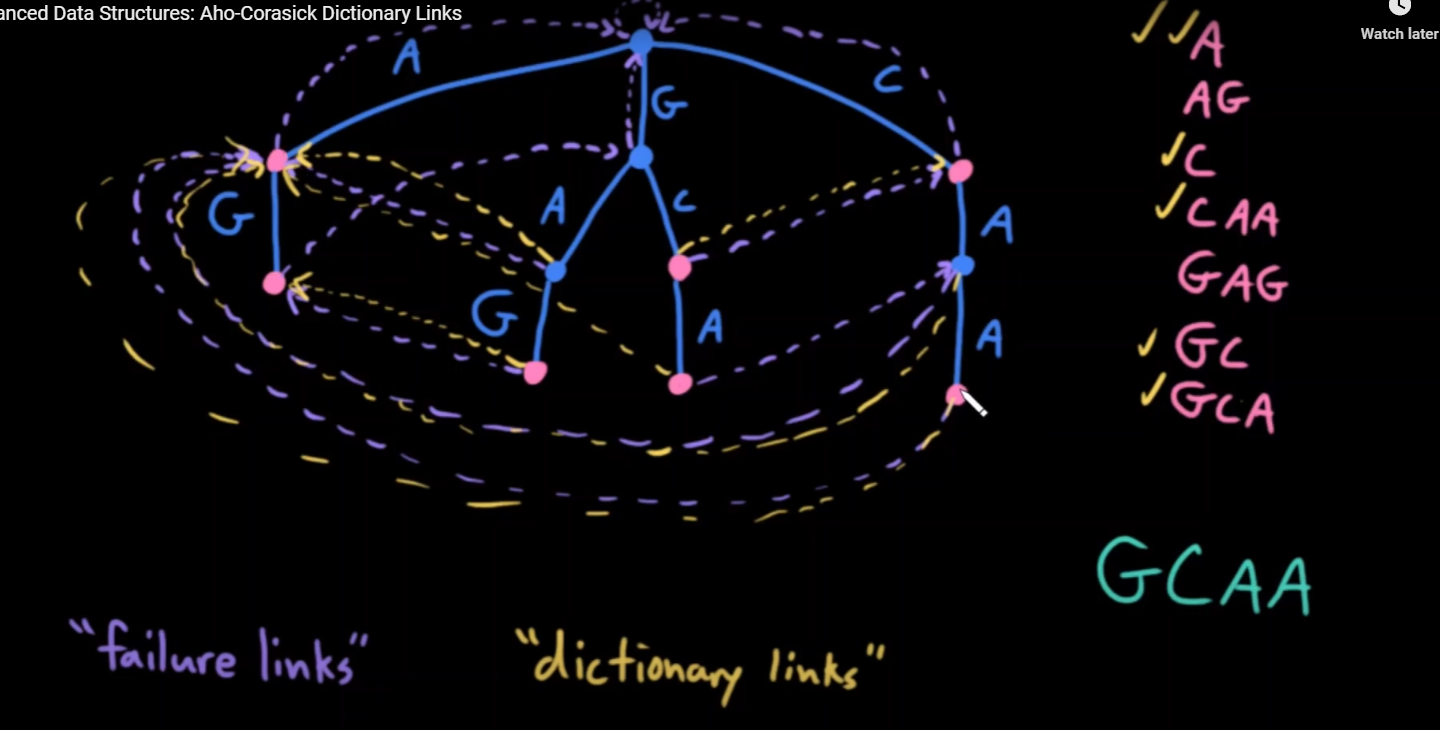 anced Data Structures: Aho-Corasick Dictionary Links
Watch later
A
G
C
A
C
A
G
A
G
A
A
A
AG
C
CAA
GAG
GC
GCA
GCAA
"failure links"
"dictionary links"